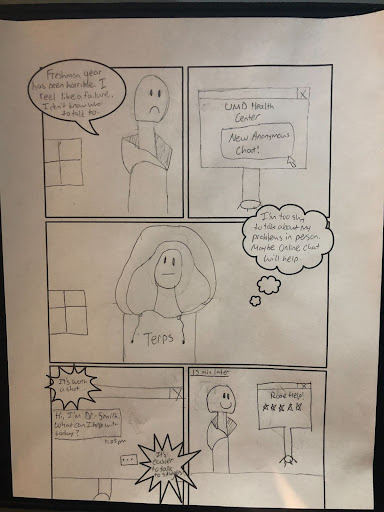 Freshman year
has been horrible. I
feel like a failure.
I don't know who
to talk to.
X
UMD Health
Center
New Anonymous
Chat!
I'm too shy
to talk about my
problems in person.
Maybe online chat
will help.
Terps
It's worth
a shot.
X
Hi, I'm Dr. Smith.
What can I help with
today?
11:05pm
...
It's
easier
to talk
to
15 min later
X
Rate Help!